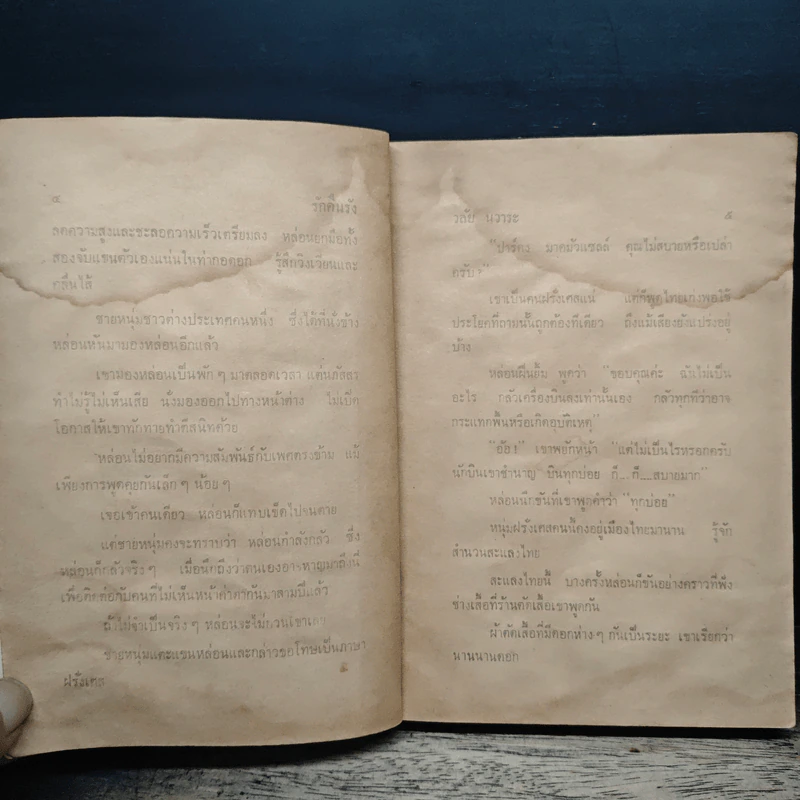 ๔ รักคืนรัง
ลดความสูงและชะลอความเร็วเตรียมลง หล่อนยกมือทั้ง
สองจับแขนตัวเองแน่นในท่ากอดอก รู้สึกวิงเวียนและ
คลื่นไส้
ชายหนุ่มชาวต่างประเทศคนหนึ่ง ซึ่งได้ที่นั่งข้าง
หล่อนหันมามองหล่อนอีกแล้ว
เขามองหล่อนเป็นพัก ๆ มาตลอดเวลา แต่นภัสสร
ทำไม่รู้ไม่เห็นเสีย นั่งมองออกไปทางหน้าต่าง ไม่เปิด
โอกาสให้เขาทักทายทำตีสนิทด้วย
หล่อนไม่อยากมีความสัมพันธ์กับเพศตรงข้าม แม้
เพียงการพูดคุยกันเล็ก ๆ น้อย ๆ
เจอเข้าคนเดียว หล่อนก็แทบเข็ดไปจนตาย
แต่ชายหนุ่มคงจะทราบว่า หล่อนกำลังกลัว ซึ่ง
หล่อนก็กลัวจริง ๆ เมื่อนึกถึงว่าตนเองอาจหาญมาถึงนี่
เพื่อติดต่อกับคนที่ไม่เห็นหน้าค่าตากันมาสามปีแล้ว
ถ้าไม่จำเป็นจริง ๆ หล่อนจะไม่กวนเขาเลย
ชายหนุ่มแตะแขนหล่อนและกล่าวขอโทษเป็นภาษา
ฝรั่งเศส
วลัย นวาระ ๕
"ปาร์ดอง มาดมัวแซลล์ คุณไม่สบายหรือเปล่า
ครับ?"
เขาเป็นคนฝรั่งเศสแน่ แต่ก็พูดไทยเก่งพอใช้
ประโยคที่ถามนั้นถูกต้องทีเดียว ถึงแม้เสียงยังแปร่งอยู่
บ้าง
หล่อนฝืนยิ้ม พูดว่า "ขอบคุณค่ะ ฉันไม่เป็น
อะไร กลัวเครื่องบินลงเท่านั้นเอง กลัวทุกทีว่าอาจ
กระแทกพื้นหรือเกิดอุบัติเหตุ"
"อ้อ!" เขาพยักหน้า "แต่ไม่เป็นไรหรอกครับ
นักบินเขาชำนาญ บินทุกบ่อย ก็...ก็....สบายมาก"
หล่อนนึกขันที่เขาพูดคำว่า "ทุกบ่อย"
หนุ่มฝรั่งเศสคนนี้คงอยู่เมืองไทยมานาน รู้จัก
สำนวนสะแลงไทย
สะแลงไทยนี้ บางครั้งหล่อนก็ขันอย่างคราวที่ฟัง
ช่างเสื้อที่ร้านตัดเสื้อเขาพูดกัน
ผ้าตัดเสื้อที่มีดอกห่าง ๆ กันเป็นระยะ เขาเรียกว่า
นานนานดอก